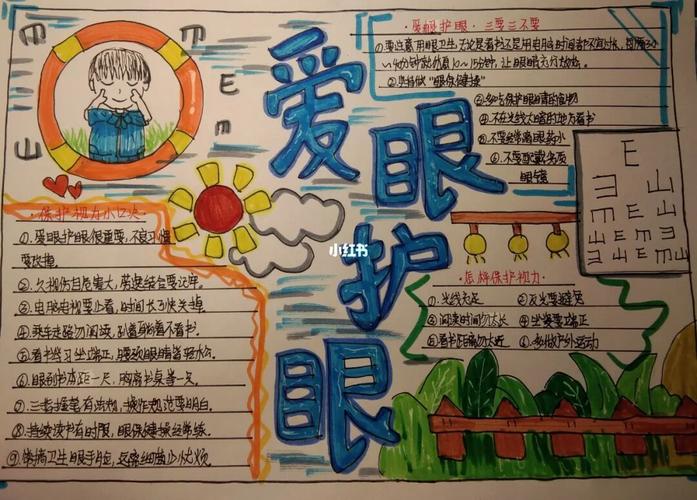 爱眼护眼
小红书
·爱眼护眼·三要三不要
①要注意用眼卫生,无论是看书还是用电脑时间都不宜过长,每隔30
~40分钟就休息10~15分钟,让眼睛充分放松。
②坚持做“眼保健操”
③多吃保护眼睛的食物
④.不在光线太暗的地方看书
⑤.不要经常滴眼药水
⑥.不要配戴劣质
眼镜
·保护视力小口诀
①.爱眼护眼很重要,不良习惯
要改掉。
②.久视伤目危害大,劳逸结合要记牢。
③.电脑电视要少看,时间长了快关掉。
④.乘车走路勿阅读,躺着看书
⑤.看书练习坐端正,眼睛轻松
⑥.眼到书本距一尺,胸离书桌差一先。
⑦.三指握笔有法规,操作规范要明白。
⑧.持续读书有时限,眼保健操经常练。
⑨.讲究卫生眼手脸,远离细菌少忧烦。
·怎样保护视力
①.光线充足
②.反光要避免
③.阅读时间勿太长
④.坐姿要端正
⑤.看书距离勿太近
⑥.多做户外运动
E
E
m
E
m
Ш
E
ヨ 山
E M 山